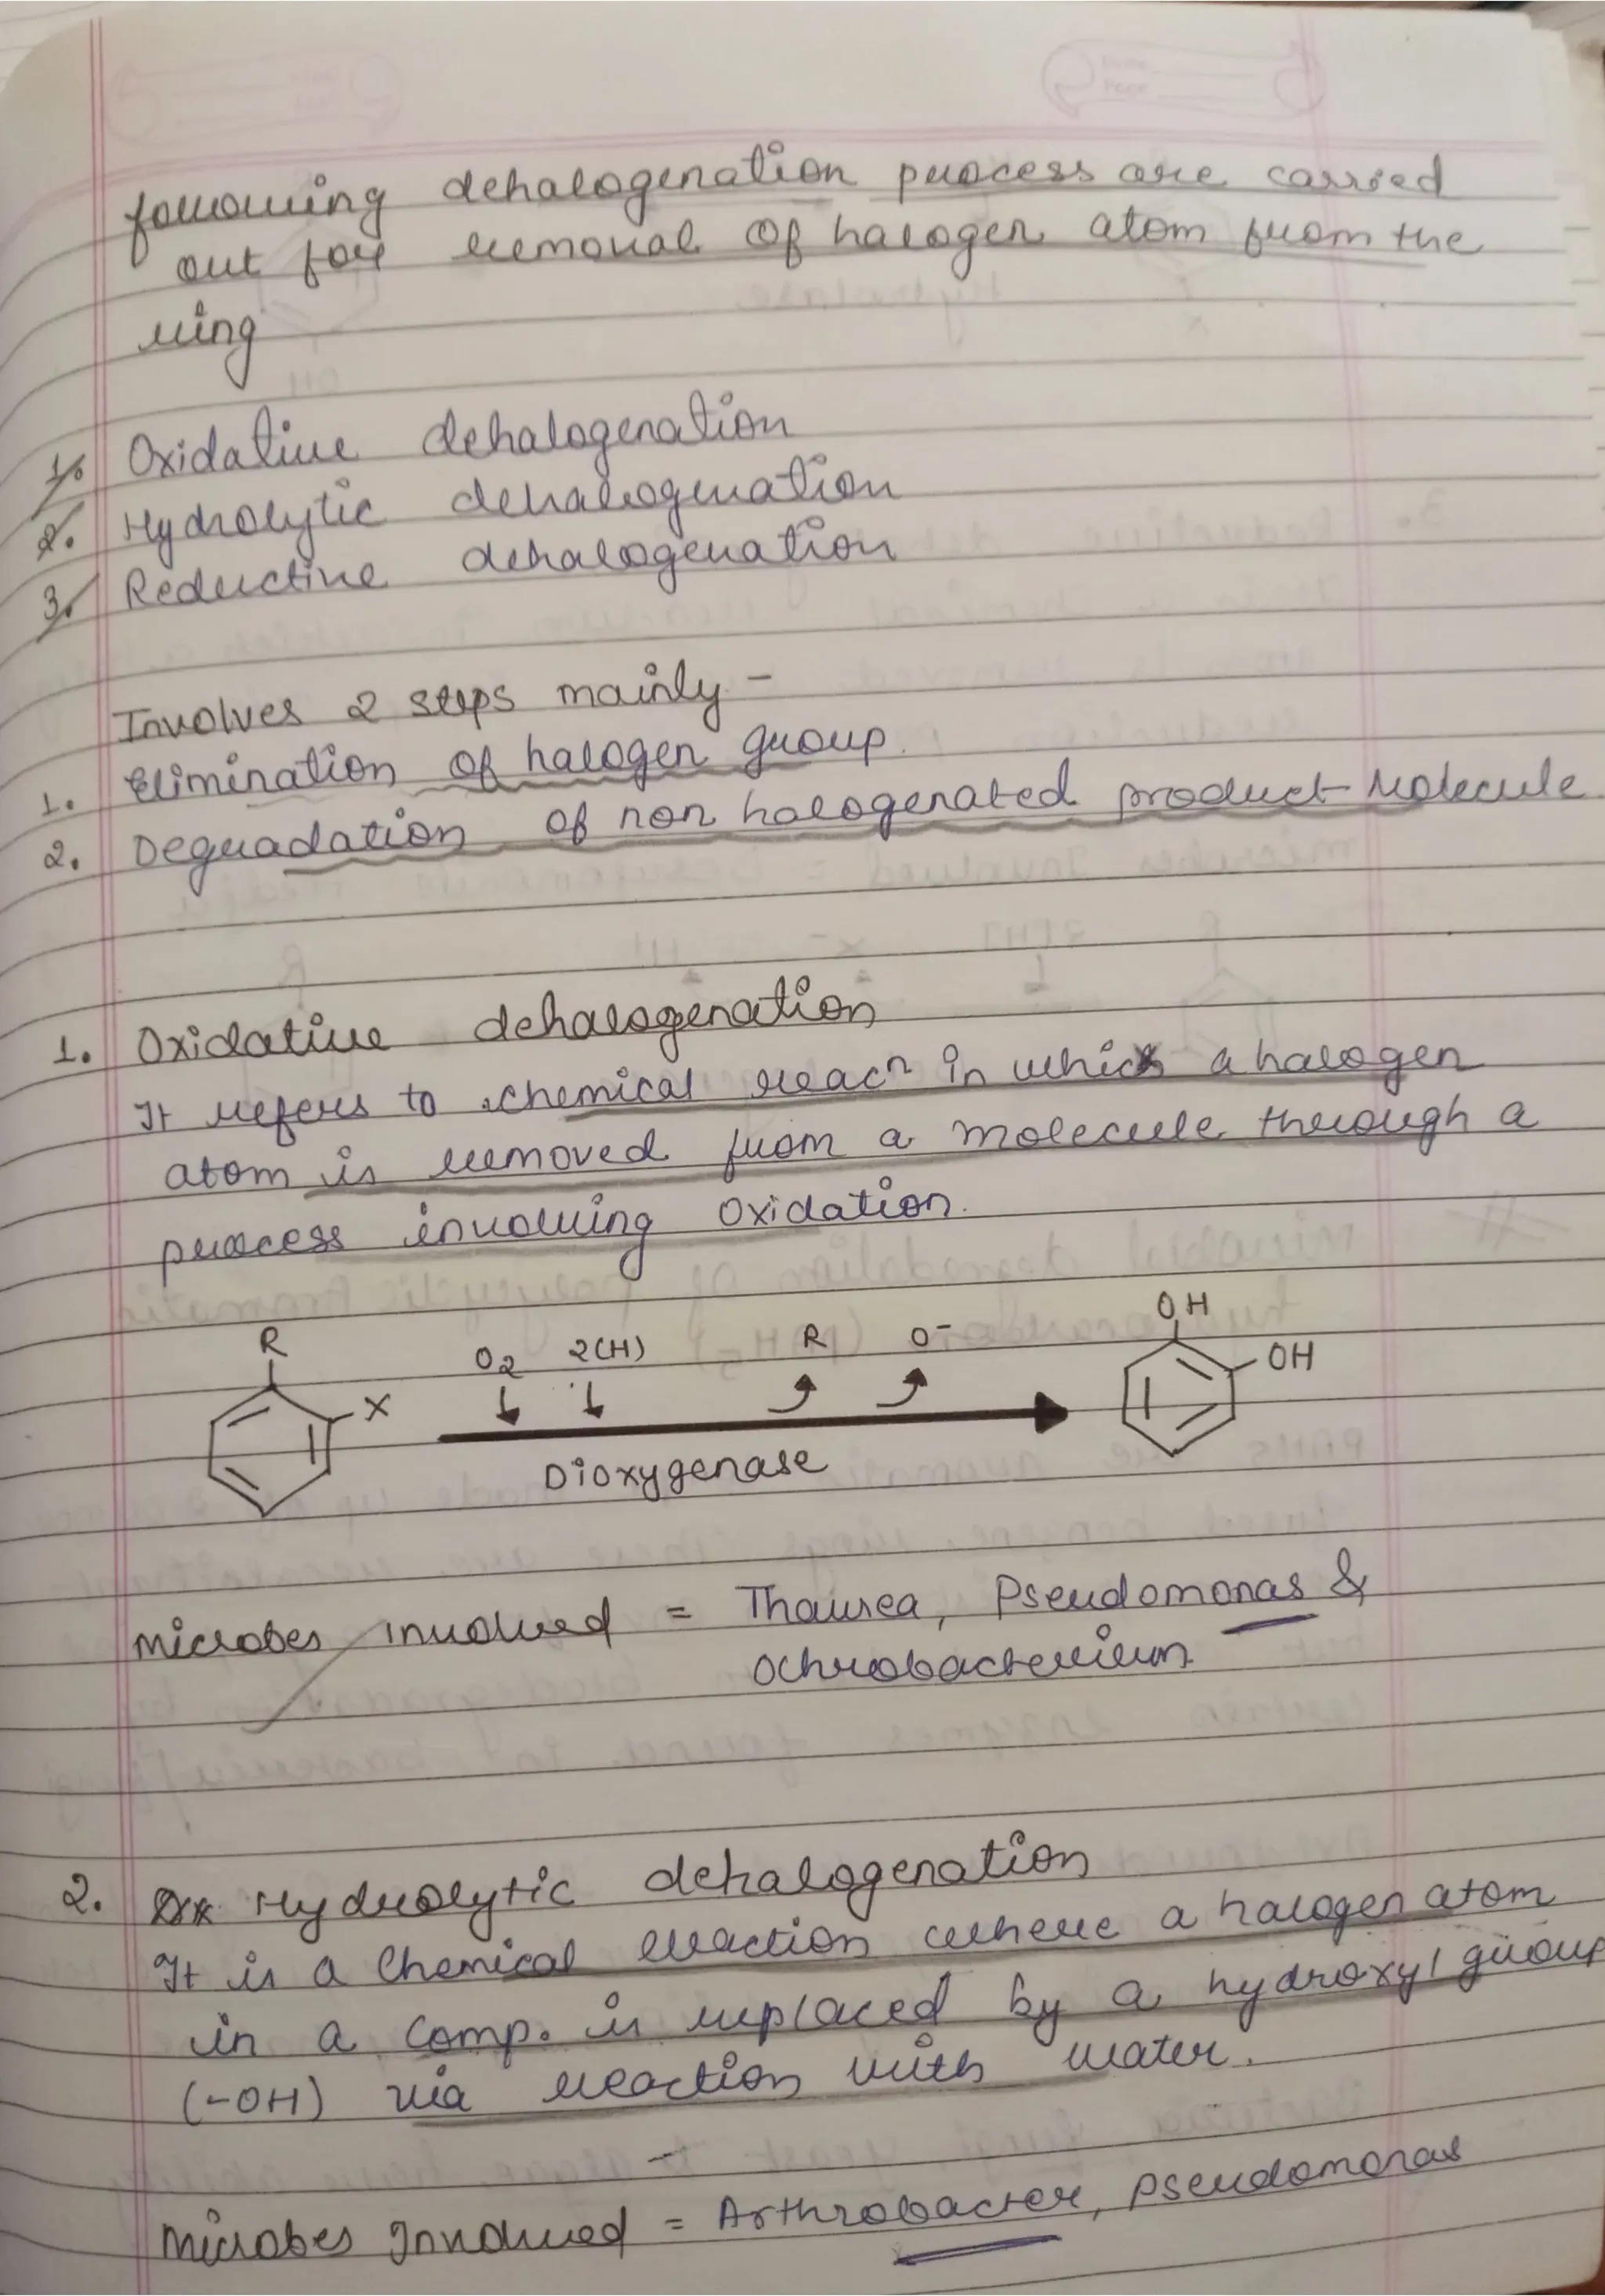 following dehalogenation process are carried
out for removal of halogen atom from the
ring
1. Oxidative dehalogenation
2. Hydrolytic dehalogenation
3. Reductive dehalogenation
Involves 2 steps mainly -
1. Elimination of halogen group.
2. Degradation of non halogenated product Molecule
1. Oxidative dehalogenation
It refers to chemical reacn in which a halogen
atom is removed from a molecule through a
process involving oxidation.
R X O2 2(H) R O- OH OH
Dioxygenase
microbes involved = Thaurea, Pseudomonas &
Ochrobacterium
2. Hydrolytic dehalogenation
It is a Chemical reaction where a halogen atom
in a comp. is replaced by a hydroxyl group
(-OH) via reaction with water.
Microbes Involved = Arthrobacter, Pseudomonas